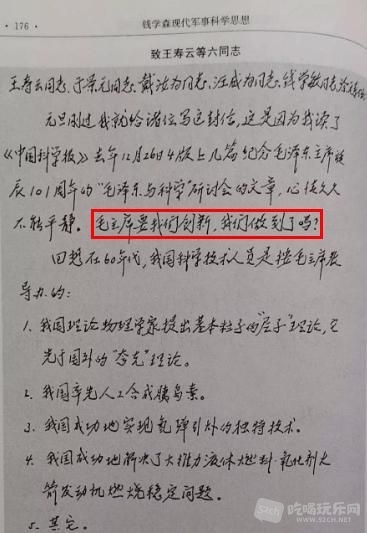 · 176 ·
钱学森现代军事科学思想
致王寿云等六同志
王寿云同志、于景元同志、戴汝为同志、汪成为同志、钱学敏同志
元旦刚过我就给诸位写这封信，这是因为我读了
《中国科学报》去年12月26日4版上几篇纪念毛泽东主席诞
辰101周年的“毛泽东与科学”研讨会的文章，心情久久
不能平静。毛主席要我们创新，我们做到了吗？
回想在60年代，我国科学技术人员是按毛主席教
导办的：
1. 我国理论物理学家提出基本粒子的“层子”理论，它
先于国外的“夸克”理论。
2. 我国率先人工合成胰岛素。
3. 我国成功地实现氢弹引爆的独特技术。
4. 我国成功地解决了大推力液体燃料·氧化剂火
箭发动机燃烧稳定问题。
5. 其它。
吃喝玩乐网
www.52ch.net